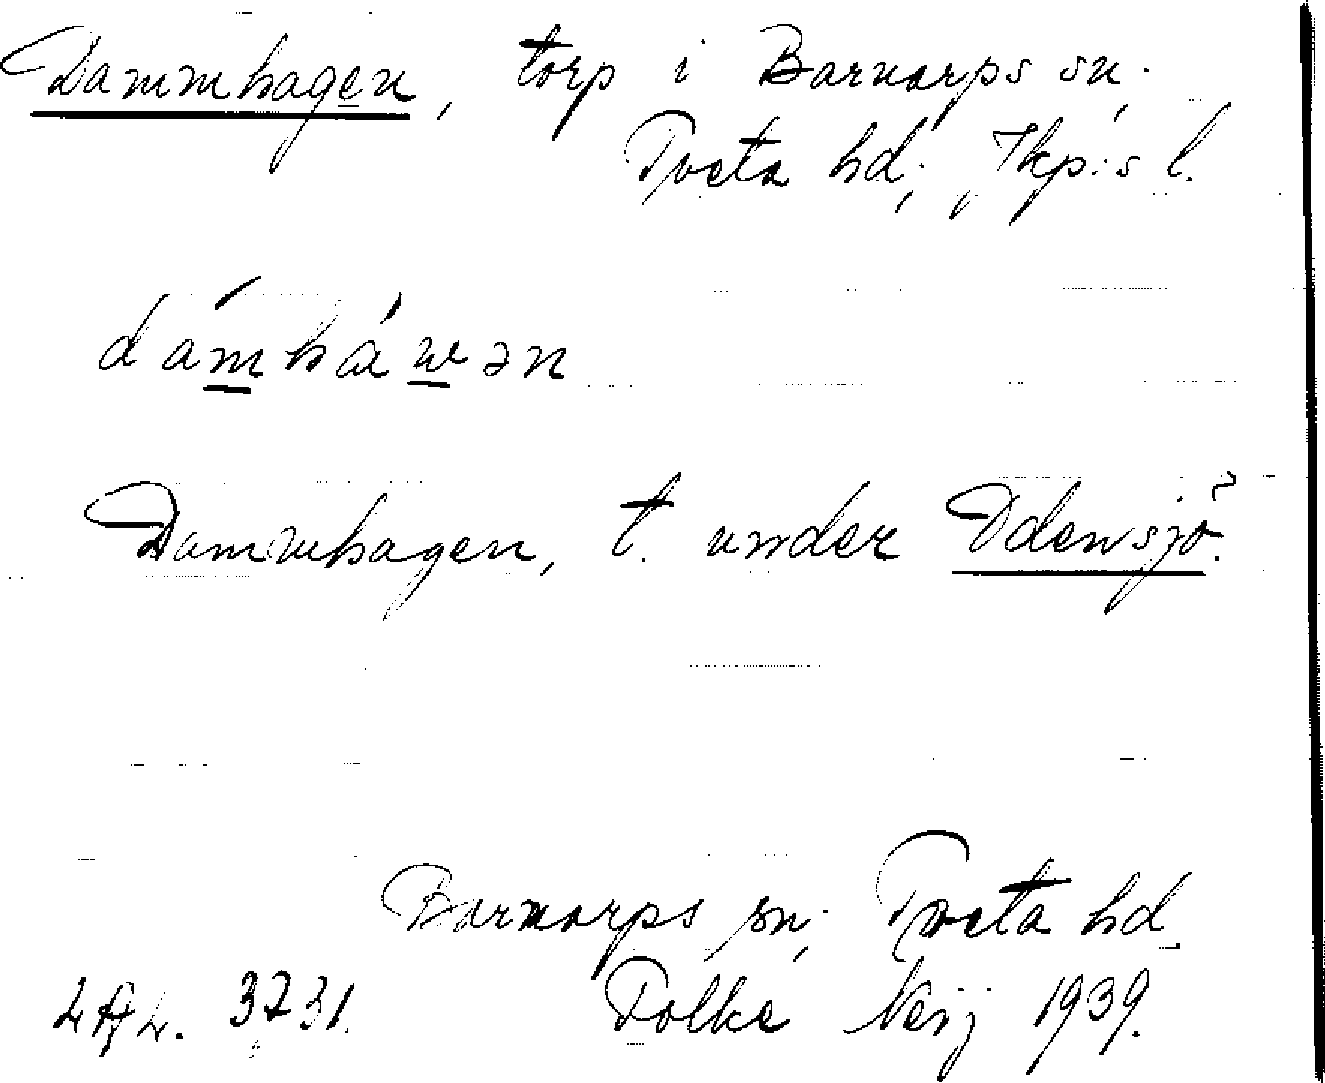 Dammhagen, torp i Barnarps sn.
Tveta hd, Jkp:s l.
dámháwən
Dammhagen, t. under Odensjö.
Barnarps sn, Tveta hd
LAL. 3731. Folke Neij 1939.